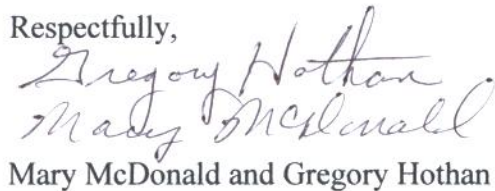 Respectfully,
Gregory Hothan
Mary McDonald
Mary McDonald and Gregory Hothan